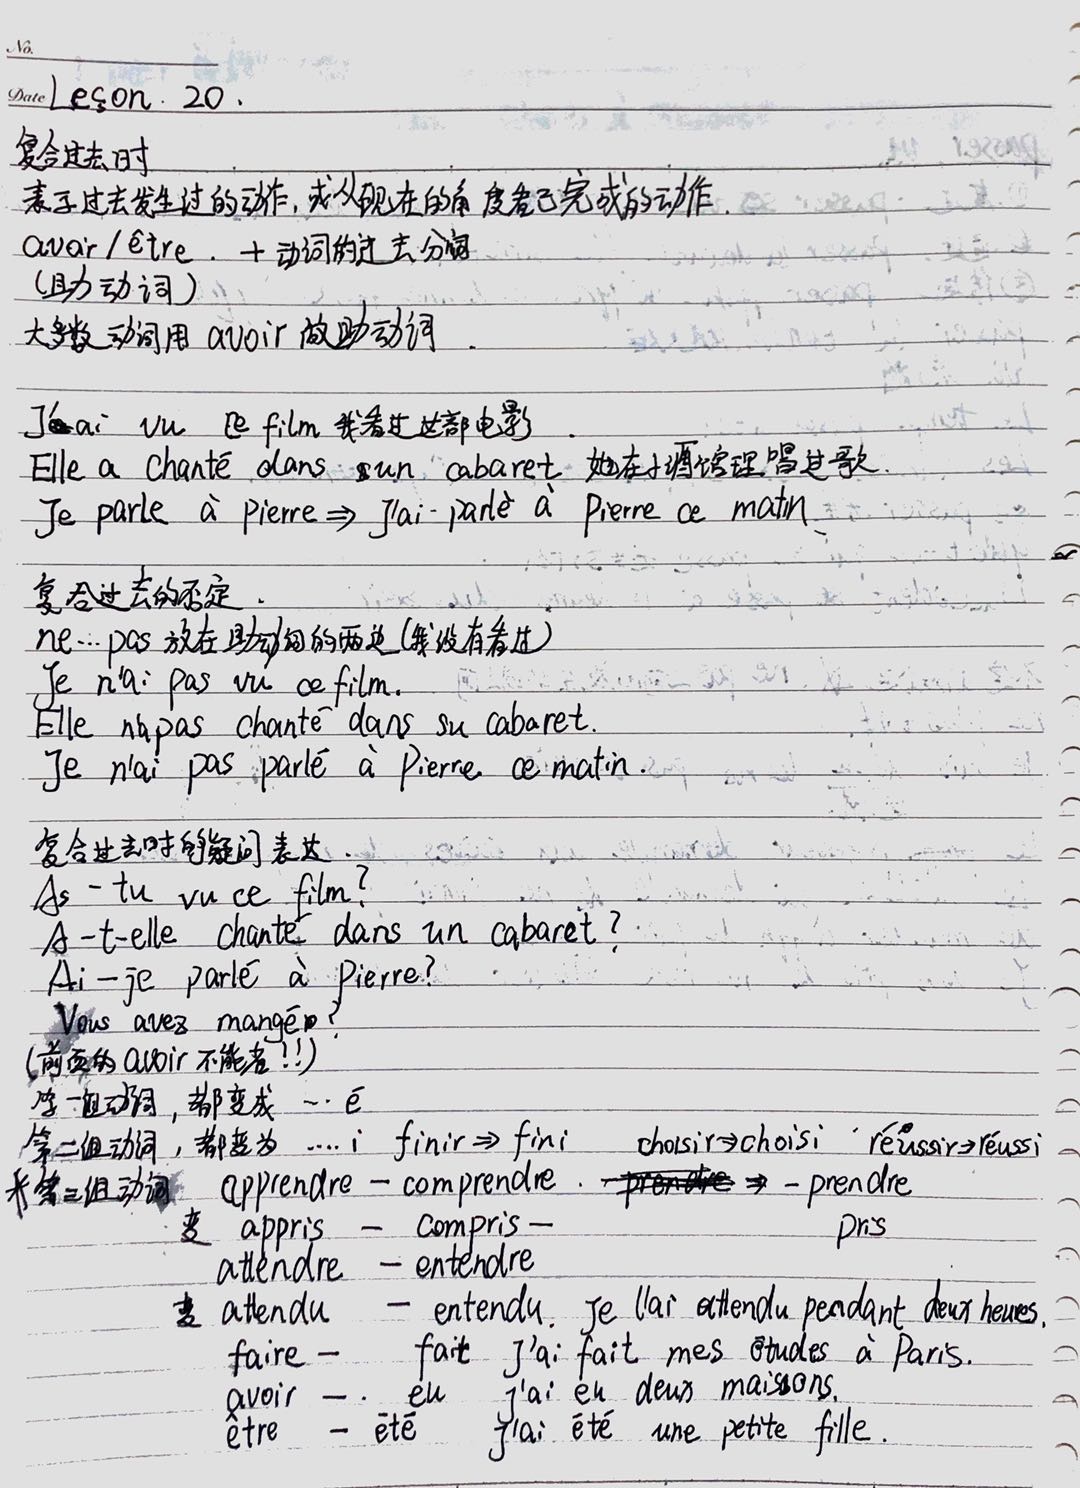 No.
Date Leçon. 20.
复合过去时
表示过去发生过的动作，或从现在的角度看已完成的动作.
avoir / être. + 动词的过去分词
(助动词)
大多数动词用 avoir 做助动词.
J'ai vu ce film 我看过这部电影.
Elle a chanté dans un cabaret 她在小酒馆理唱过歌.
Je parle à Pierre ⇒ J'ai parlé à Pierre ce matin
复合过去的否定.
ne...pas 放在助动词的两边 (我没有看过)
Je n'ai pas vu ce film.
Elle n'a pas chanté dans su cabaret.
Je n'ai pas parlé à Pierre ce matin.
复合过去时的疑问表达.
As-tu vu ce film?
A-t-elle chanté dans un cabaret?
Ai-je parlé à Pierre?
Vous avez mangé?
(前面的 avoir 不能省!!)
第一组动词，都变成 ... é
第二组动词，都变为 .... i finir ⇒ fini choisir → choisi réussir → réussi
* 第三组动词 apprendre - comprendre. - prendre
变 appris - compris - pris
attendre - entendre
变 attendu - entendu. Je l'ai attendu pendant deux heures.
faire - fait J'ai fait mes études à Paris.
avoir - . eu J'ai eu deux maisons.
être - été J'ai été une petite fille.